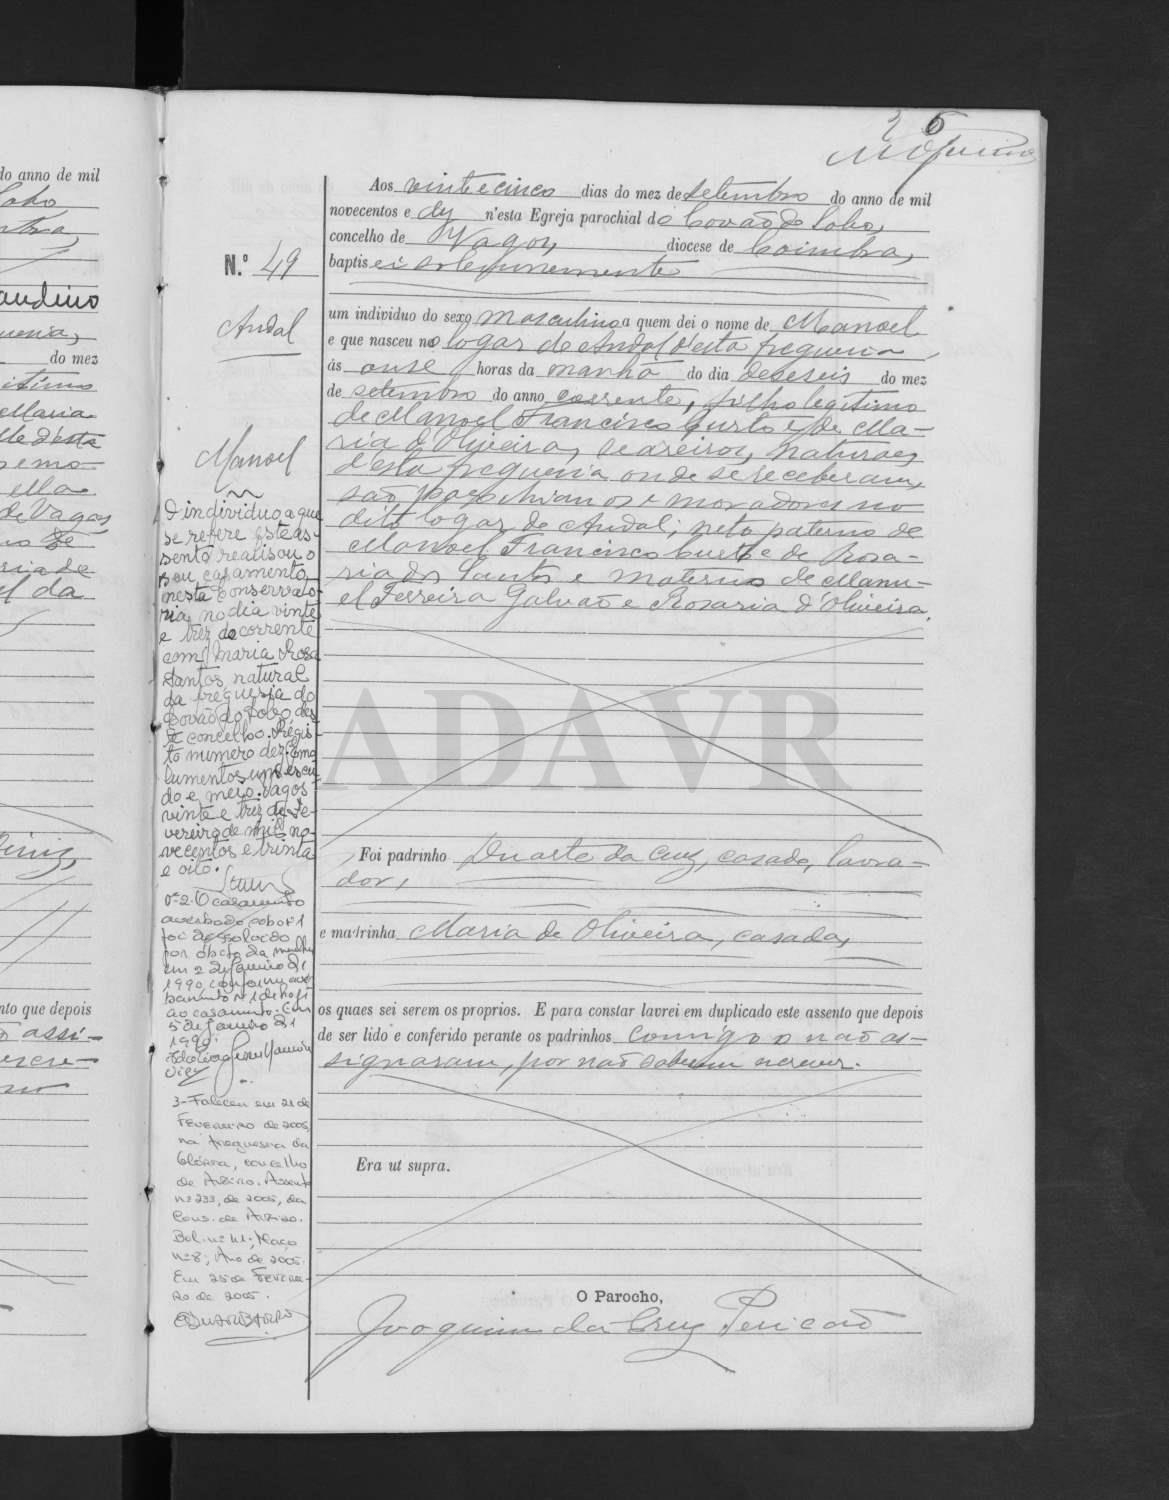 26
do anno de mil
do mez
nto que depois
N.º 49
Andal
Manoel
Aos vinte e cinco dias do mez de Setembro do anno de mil
novecentos e dez n'esta Egreja parochial do Covão do Lobo,
concelho de Vagos, diocese de Coimbra,
baptisei solemnemente
um individuo do sexo masculino a quem dei o nome de Manoel
e que nasceu no logar de Andal d'esta freguesia
ás onse horas da manhã do dia deseseis do mez
de setembro do anno corrente, filho legitimo
de Manoel Francisco Curto e de Ma-
ria d'Oliveira, seareiros, naturaes
d'esta freguesia onde se receberam,
são parochianos e moradores no
dito logar de Andal; neto paterno de
Manoel Francisco Curto e de Rosa-
ria dos Santos e materno de Manu-
el Ferreira Galvão e Rosaria d'Oliveira.
O individuo a que
se refere este as-
sento realisou o
seu casamento,
nesta Conservato-
ria, no dia vinte
e trez do corrente
com Maria Rosa
Santos, natural
da freguesia do
Covão do Lobo, des-
te concelho. Régis-
to numero dez. Emo-
lumentos um escu-
do e meio. Vagos
vinte e trez de Fe-
vereiro de mil no-
vecentos e trinta
e oito.
ADAVR
Foi padrinho Duarte da Cruz, casado, lavra-
dor,
e madrinha Maria de Oliveira, casada,
Nº 2. O casamento
averbado sob o nº 1
foi dissolvido
por óbito da mulher
em 2 de Janeiro de
1990, conforme aver-
bamento nº 1 de hoje
ao casamento. Em
5 de Janeiro de
1990.
os quaes sei serem os proprios. E para constar lavrei em duplicado este assento que depois
de ser lido e conferido perante os padrinhos comigo o não as-
signaram, por não saberem escrever.
3- Faleceu em 21 de
Fevereiro de 2005,
na freguesia da
Glória, concelho
de Aveiro. Assento
nº 233, de 2005, da
Cons. de Aveiro.
Bol. nº 41; Maço
nº 8; Ano de 2005.
Em 25 de Feverei-
ro de 2005.
Era ut supra.
O Parocho,
Joaquim da Cruz Pericão